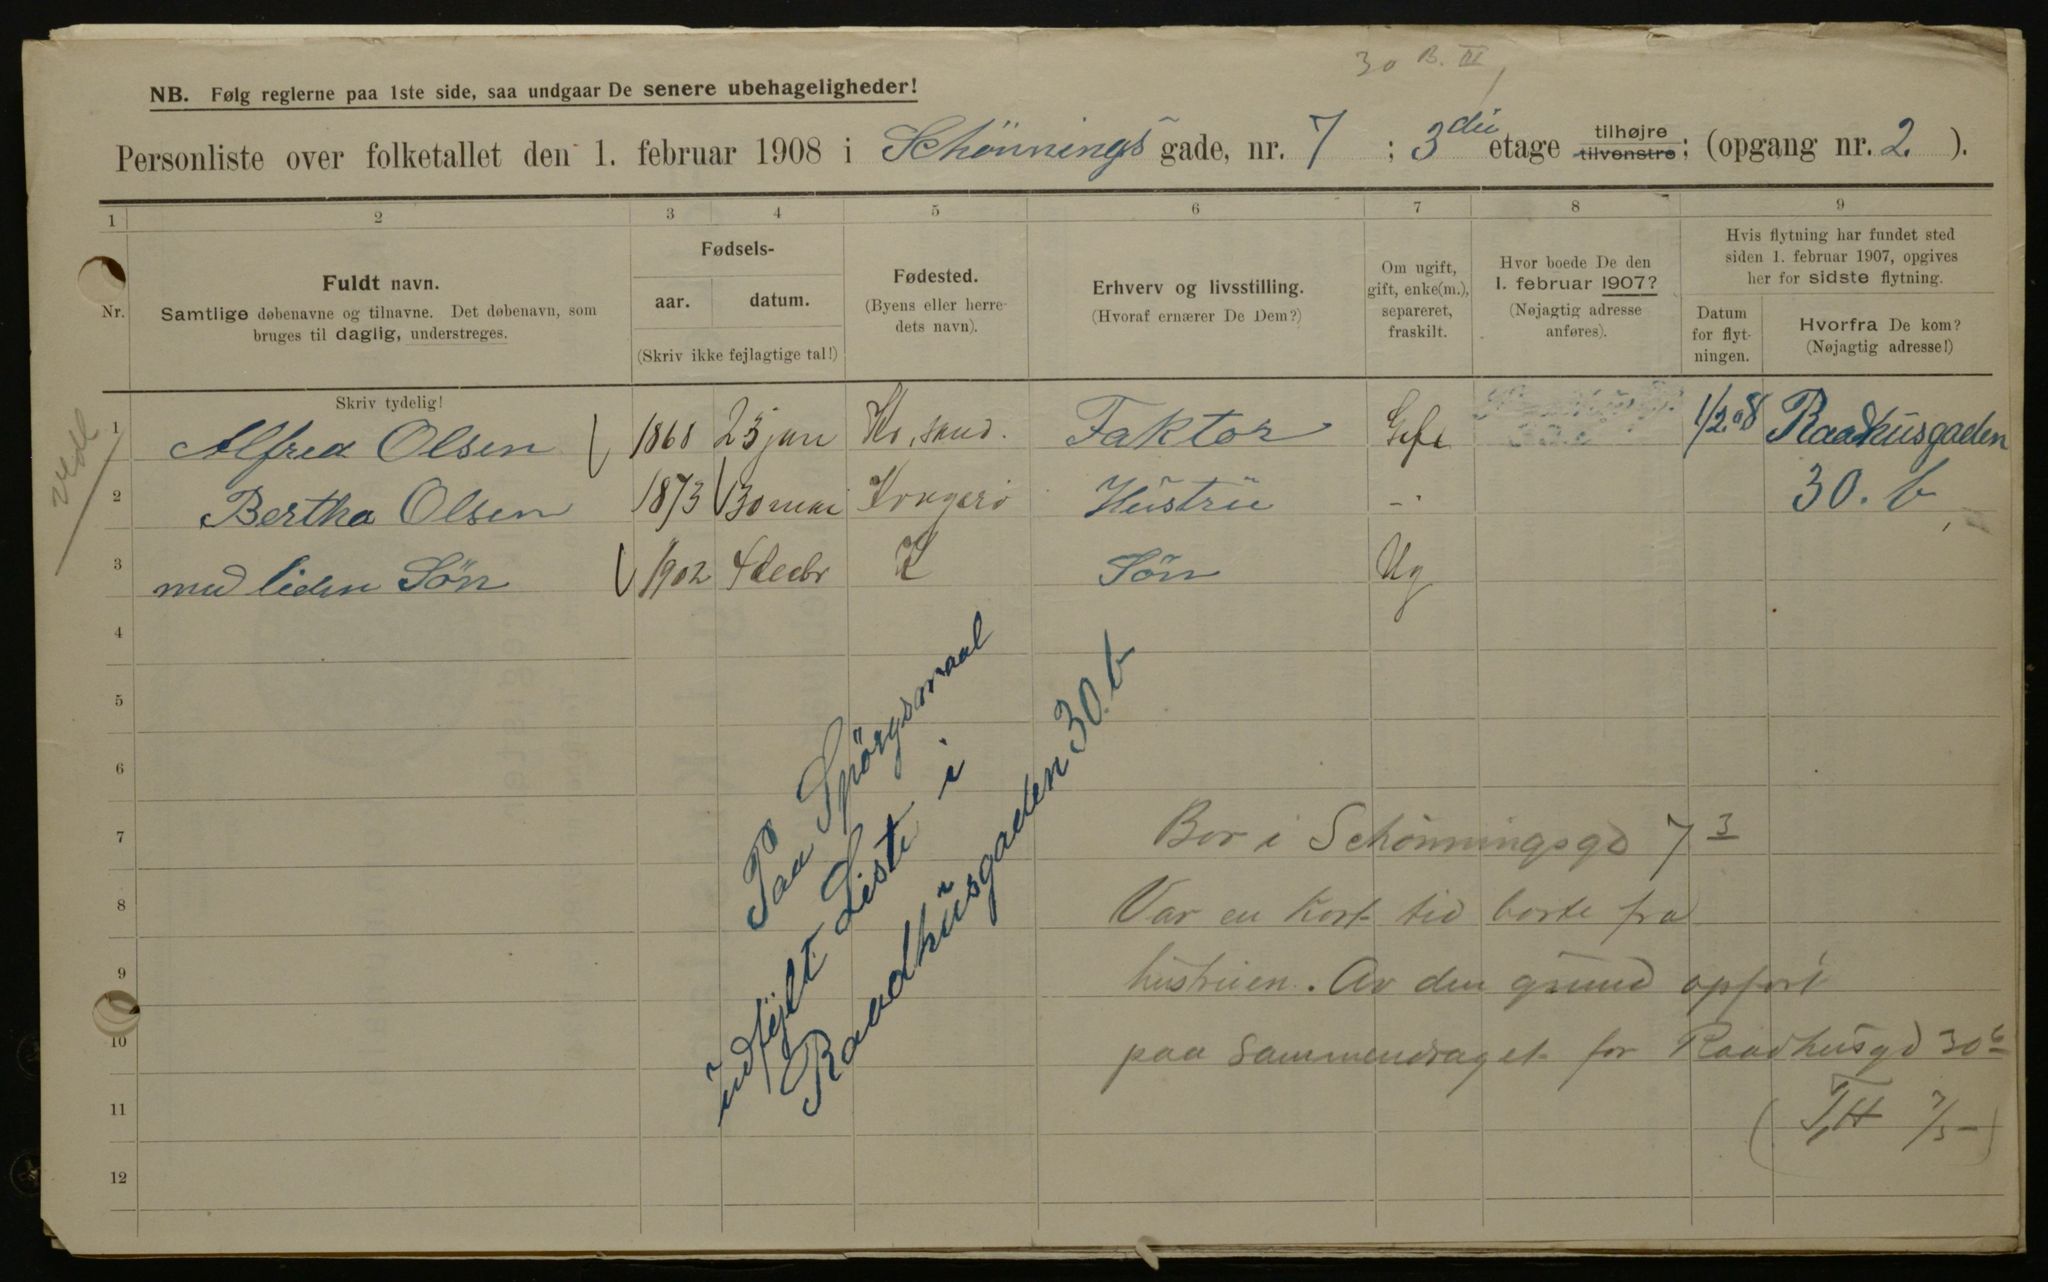 30 B. III
NB. Følg reglerne paa 1ste side, saa undgaar De senere ubehageligheder!
Personliste over folketallet den 1. februar 1908 i Schønnings gade, nr. 7 ; 3die etage tilhøjre tilvenstre; (opgang nr. 2. ).
1 2 3 4 5 6 7 8 9
Nr.
Fuldt navn.
Samtlige døbenavne og tilnavne. Det døbenavn, som
bruges til daglig, understreges.
Fødsels-
aar. datum.
(Skriv ikke fejlagtige tal!)
Fødested.
(Byens eller herre-
dets navn).
Erhverv og livsstilling.
(Hvoraf ernærer De Dem?)
Om ugift,
gift, enke(m.),
separeret,
fraskilt.
Hvor boede De den
1. februar 1907?
(Nøjagtig adresse
anføres).
Hvis flytning har fundet sted
siden 1. februar 1907, opgives
her for sidste flytning.
Datum
for flyt-
ningen.
Hvorfra De kom?
(Nøjagtig adresse!)
Skriv tydelig!
1 Alfred Olsen 1868 23 jan Kr. sand. Faktor Gift 1/2 08 Raadhusgaden
2 Bertha Olsen 1873 30 mai Kragerø Hustru -. 30. b
3 med liden Sön 1902 4 decbr K Sön Ug
4
5
6
7
8
9
10
11
12
Paa Spörgsmaal
udfyldt Liste i
Raadhusgaden 30. b
Bor i Schønningsgd 7 3
Var en kort tid borte fra
hustruen. Av den grund opført
paa sammendraget for Raadhusgd 30 b
(T,H 7/5-)